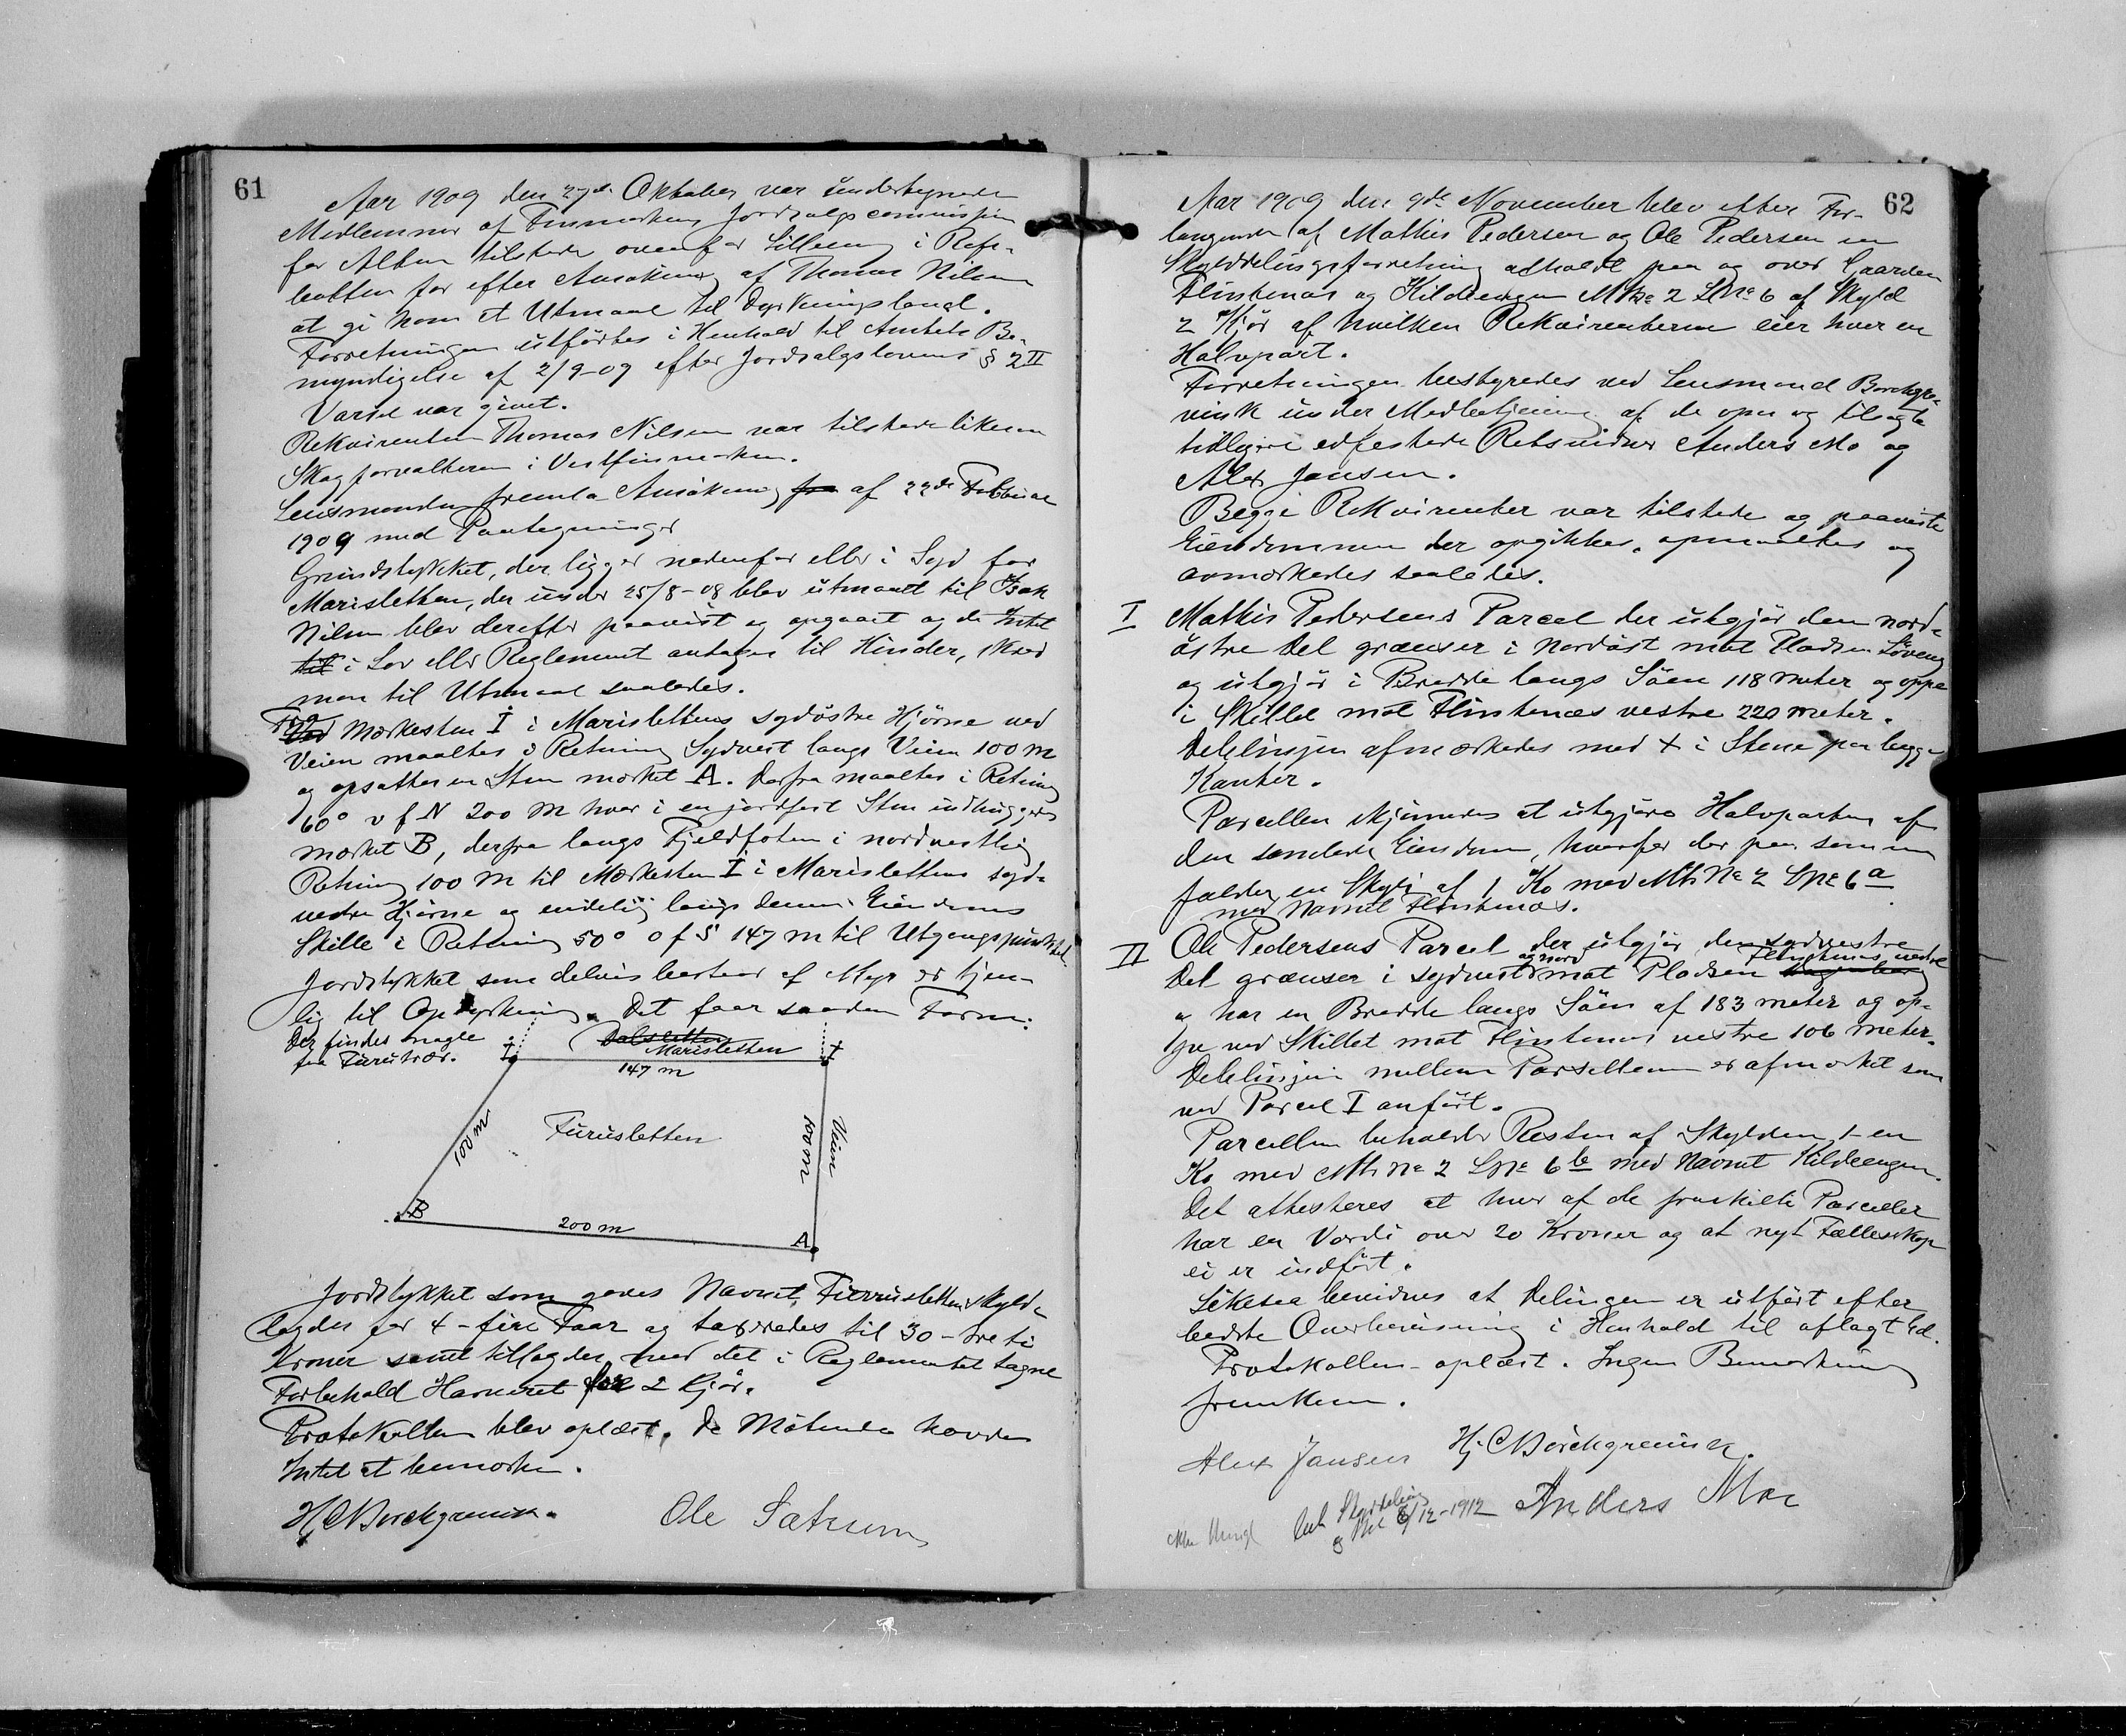 61
Aar 1909 den 27de Oktober var undertegnede
Medlemmer af Finmarkens Jordsalgscommission
for Alten tilstede ovenfor Lilleeng i Refs-
botten for efter Ansøkning af Thomas Nilsen
at gi ham et Utmaal til Dyrkningsland.
Forretningen utførtes i Henhold til Amtets Be-
myndigelse af 2/9-09 efter Jordsalgslovens § 2 II
Varsel var givet.
Rekvirenten Thomas Nilsen var tilstede likesaa
Skogforvalteren i Vestfinmarken.
Lensmanden fremla Ansøkning fra af 22de Februar
1909 med Paategninger
Grundstykket, der ligger nedenfor eller i Syd for
Marisletten, der under 25/8-08 blev utmaalt til Isak
Nilsen blev derefter paavist og opgaaet og da Intet
til i Lov eller Reglement antages til Hinder, skred
man til Utmaal saaledes.
Fra
Ved Merkesten I i Marislettens sydøstre Hjørne ved
Veien maaltes i Retning Sydvest langs Veien 100 m
og opsattes en Sten merket A. Derfra maaltes i Retning
60° v f N 200 m hvor i en jordfast Sten indhugges
merket B, derfra langs Fjeldfoten i nordvestlig
Retning 100 m til Merkesten I i Marislettens syd-
vestre Hjørne og endelig langs denne Eiendoms
Skille i Retning 50° o f S 147 m til Utgangspunktet
Jordstykket som delvis bestaar af Myr er tjen-
lig til Opdyrkning. Det faar saadan Form:
Der findes nogle
faa Furutrær.
Dalsletten
Marisletten
I
I
147 m
100 m
Furusletten
100 m
Veien
B
200 m
A
Jordstykket som gaves Navnet Furrusletten skyld-
lagdes for 4 - fire Faar og taxeredes til 30 - treti
Kroner samt tillagdes med det i Reglementet tagne
Forbehold Havneret for 2 Kjør.
Protokollen blev oplæst. De Møtende havde
Intet at bemerke.
H. C Borchgrevink. Ole Sætrum
62
Aar 1909 den 9de November blev efter For-
langende af Mathis Pedersen og Ole Pedersen en
Skylddelingsforretning afholdt paa og over Gaarden
Flintenæs og Kildeengen M No 2 L No 6 af Skyld
2 Kjør af hvilken Rekvirenterne eier hver en
Halvpart.
Forretningen bestyredes ved Lensmand Borchgre-
vink under Medbetjening af de opn og tilsagte
tidligere edfestede Retsvidner Anders Mo og
Alex Jansen.
Begge Rekvirenter var tilstede og paaviste
Eiendommen der opgikkes, opmaaltes og
avmerkedes saaledes.
I Mathis Pedersens Parcel der utgjør den nord-
østre Del grænser i nordøst mot Pladsen Løveng
og utgjør i Bredde langs Søen 118 meter og oppe
i Skillet mot Flintenæs vestre 220 meter.
Delelinjen afmærkedes med + i Stene paa begge
Kanter.
Parcellen skjønnes at utgjøre Halvparten af
den samlede Eiendom, hvorfor der paa samme
falder en Skyld af 1 Ko med Mts No 2 L No 6 a
med Navnet Flintenæs.
II Ole Pedersens Parcel der utgjør den sydvestre
og nord
Flintenæs vestre
Del grænser i sydvest mot Pladsen
a har en Bredde langs Søen af 183 meter og op-
pe ved Skillet mot Flintenæs vestre 106 meter.
Delelinjen mellem Parsellerne er afmerket som
ved Parcel I anført.
Parcellen beholder Resten af Skylden 1 - en
Ko med Mts No 2 L No 6 b med Navnet Kildeengen.
Det attesteres at hver af de fraskilte Parceller
har en Verdi over 20 Kroner og at nyt Fællesskap
ei er indført.
Likesaa bevidnes at Delingen er utført efter
bedste Overbevisning i Henhold til aflagt Ed.
Protokollen oplæst. Ingen Bemerkning
fremkom.
Alex Jansen Hj. C Borchgrevink.
Anders Moe
og 6/12-1912